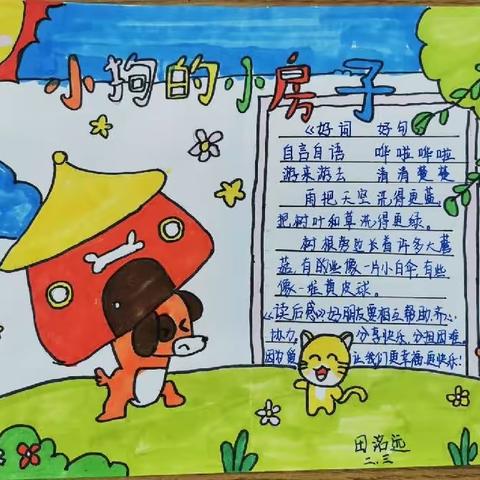 小狗的小房子
《好词 好句》
自言自语 哗啦哗啦
游来游去 清清蔓蔓
雨把天坚洗得更蓝,
把树叶和草洗得更绿。
树根旁边长着许多大蘑
菇,有的像一片小白伞,有些
像一堆黄皮球。
《读后感》好朋友要相互帮助,齐心
协力, 分享快乐, 分担困难,
因为 让我们更幸福更快乐!
田洺远
二.三